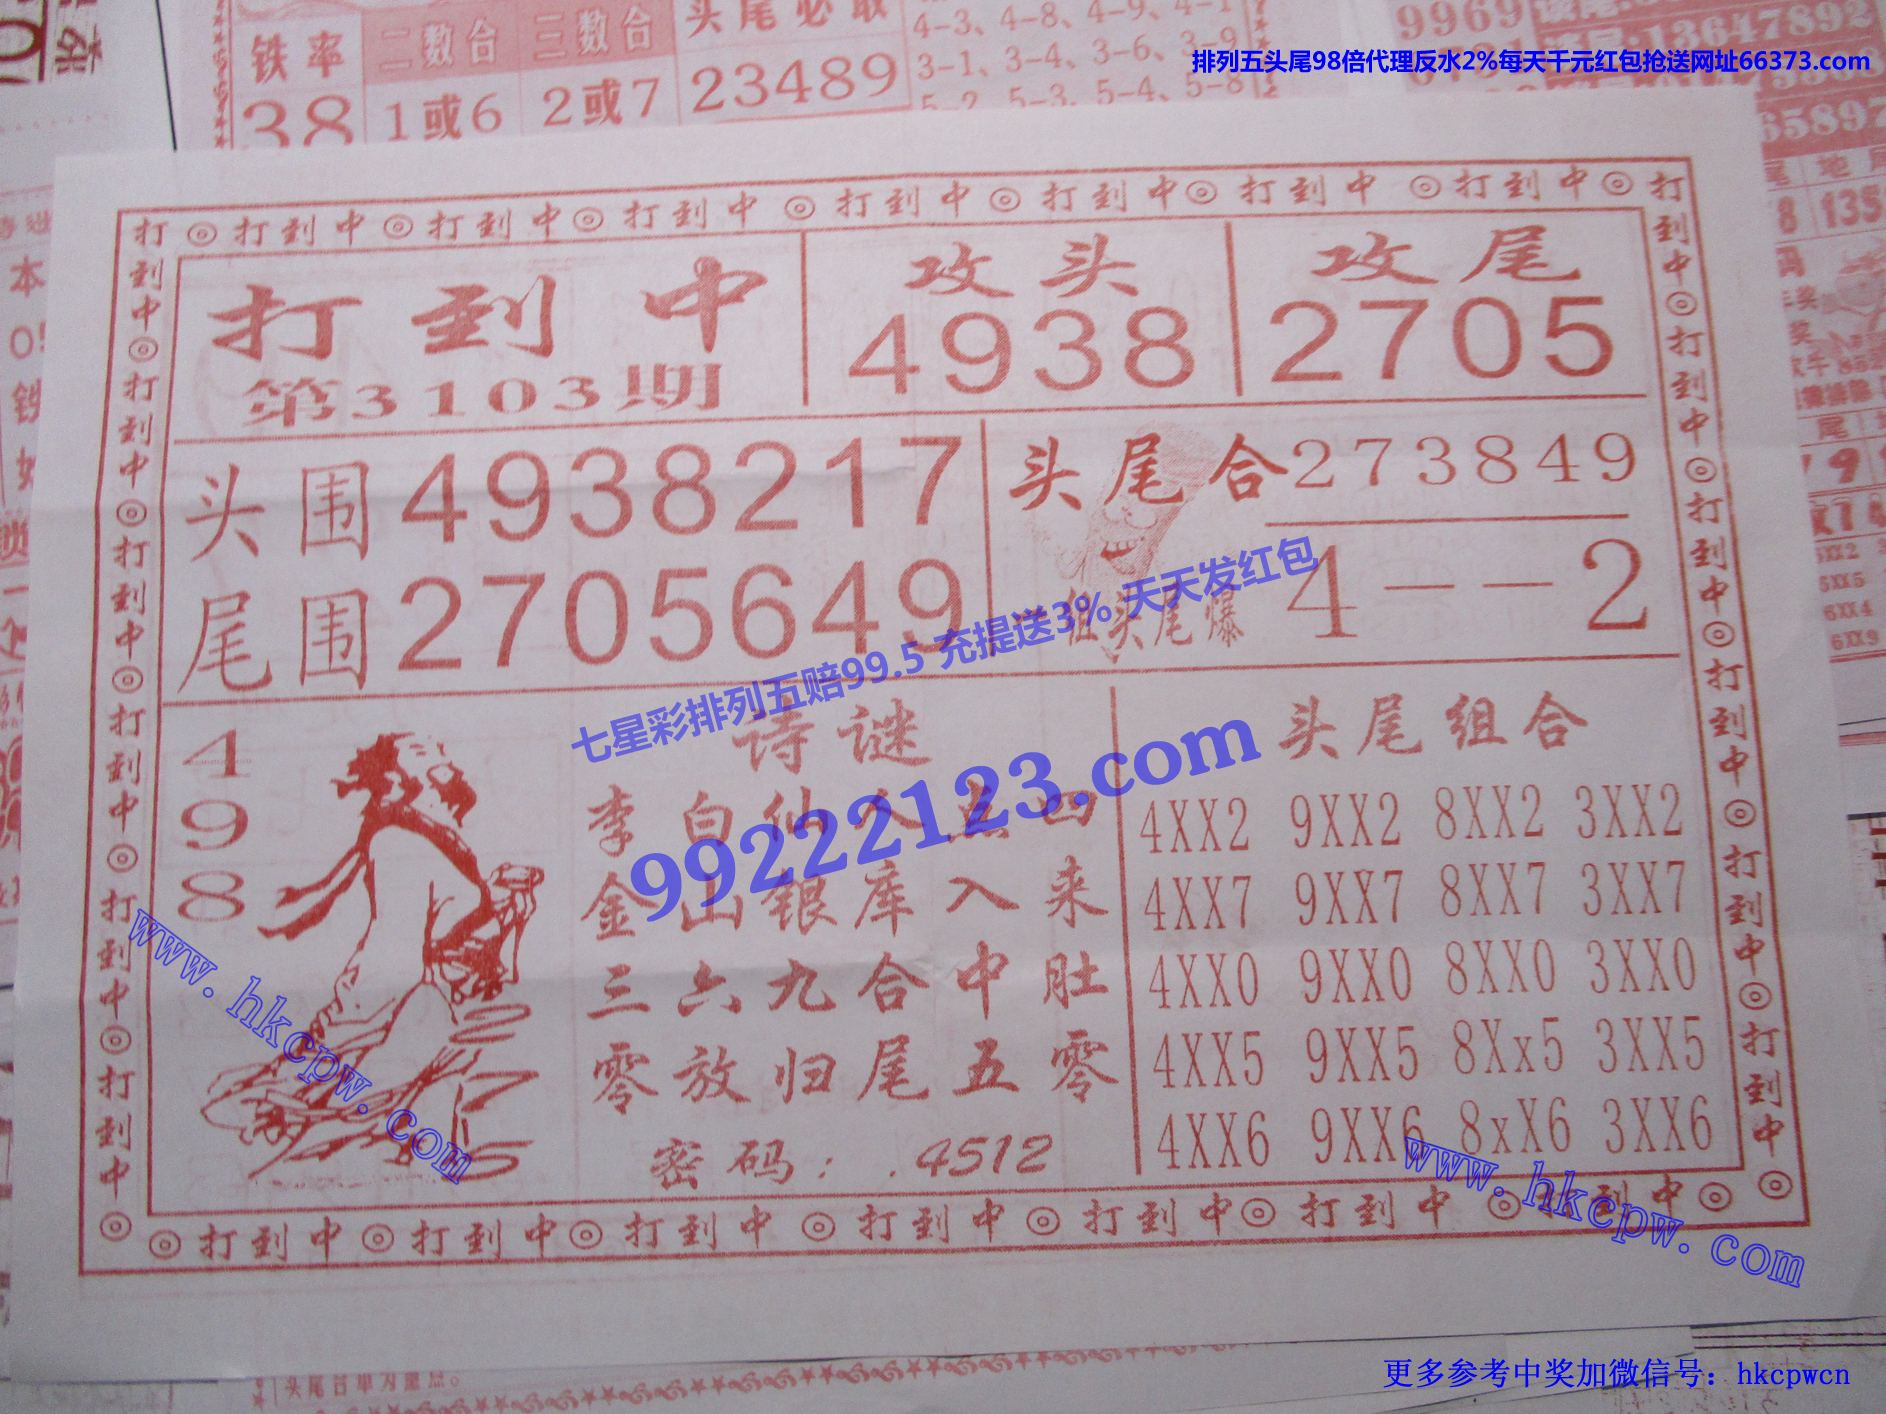 铁率 二数合 三数合 头尾必取
4-3、4-8、4-9、4-1
3-1、3-4、3-6、3-9
5-2、5-3、5-4、5-8
38 1或6 2或7 23489
9969
13647892
65897
135
排列五头尾98倍代理反水2%每天千元红包抢送网址66373.com
打 ◎ 打到中 ◎ 打到中 ◎ 打到中 ◎ 打到中 ◎ 打到中 ◎ 打到中 ◎ 打到中 ◎ 打
打到中
第3103期
攻头
4938
攻尾
2705
头围 4938217
尾围 2705649
头尾合 273849
组头尾爆 4---2
七星彩排列五赔99.5 充提送3% 天天发红包
99222123.com
4
9
8
诗谜
李白仙人 四
金山银库入来
三六九合中肚
零放归尾五零
密码：.4512
头尾组合
4XX2 9XX2 8XX2 3XX2
4XX7 9XX7 8XX7 3XX7
4XX0 9XX0 8XX0 3XX0
4XX5 9XX5 8Xx5 3XX5
4XX6 9XX6 8xX6 3XX6
www.hkcpw.com
www.hkcpw.com
◎ 打到中 ◎ 打到中 ◎ 打到中 ◎ 打到中 ◎ 打到中 ◎ 打到中 ◎ 打到中 ◎
更多参考中奖加微信号：hkcpwcn